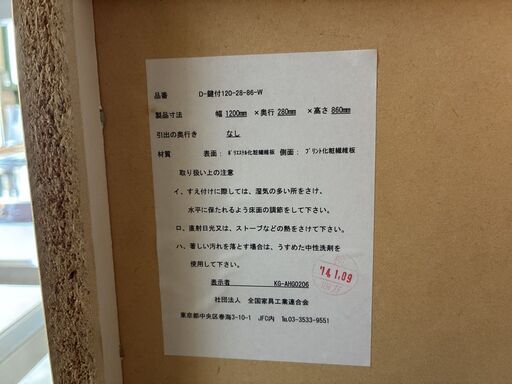 品番　D-鍵付120-28-86-W
製品寸法　幅 1200mm ×奥行 280mm ×高さ 860mm
引出の奥行き　なし
材質　表面：ポリエステル化粧繊維板　側面：プリント化粧繊維板
取り扱い上の注意
イ、すえ付けに際しては、湿気の多い所をさけ、
水平に保たれるよう床面の調節をして下さい。
ロ、直射日光又は、ストーブなどの熱をさけて下さい。
ハ、著しい汚れを落とす場合は、うすめた中性洗剤を
使用して下さい。
表示者　KG-AHG0206
'14.1.09
社団法人　全国家具工業連合会
東京都中央区春海3-10-1　JFC内　℡03-3533-9551